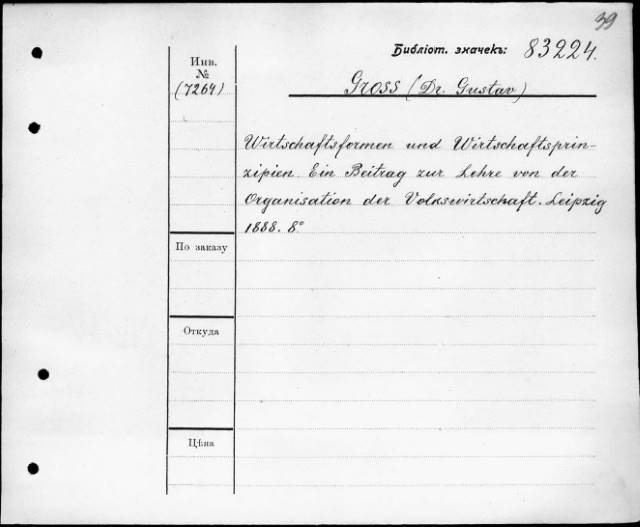 39
Библіот. значекъ: 83224.
Инв.
№
(7264)
Gross (Dr. Gustav)
Wirtschaftsformen und Wirtschaftsprin-
zipien. Ein Beitrag zur Lehre von der
Organisation der Volkswirtschaft. Leipzig
1888. 8°
По заказу
Откуда
Цѣна